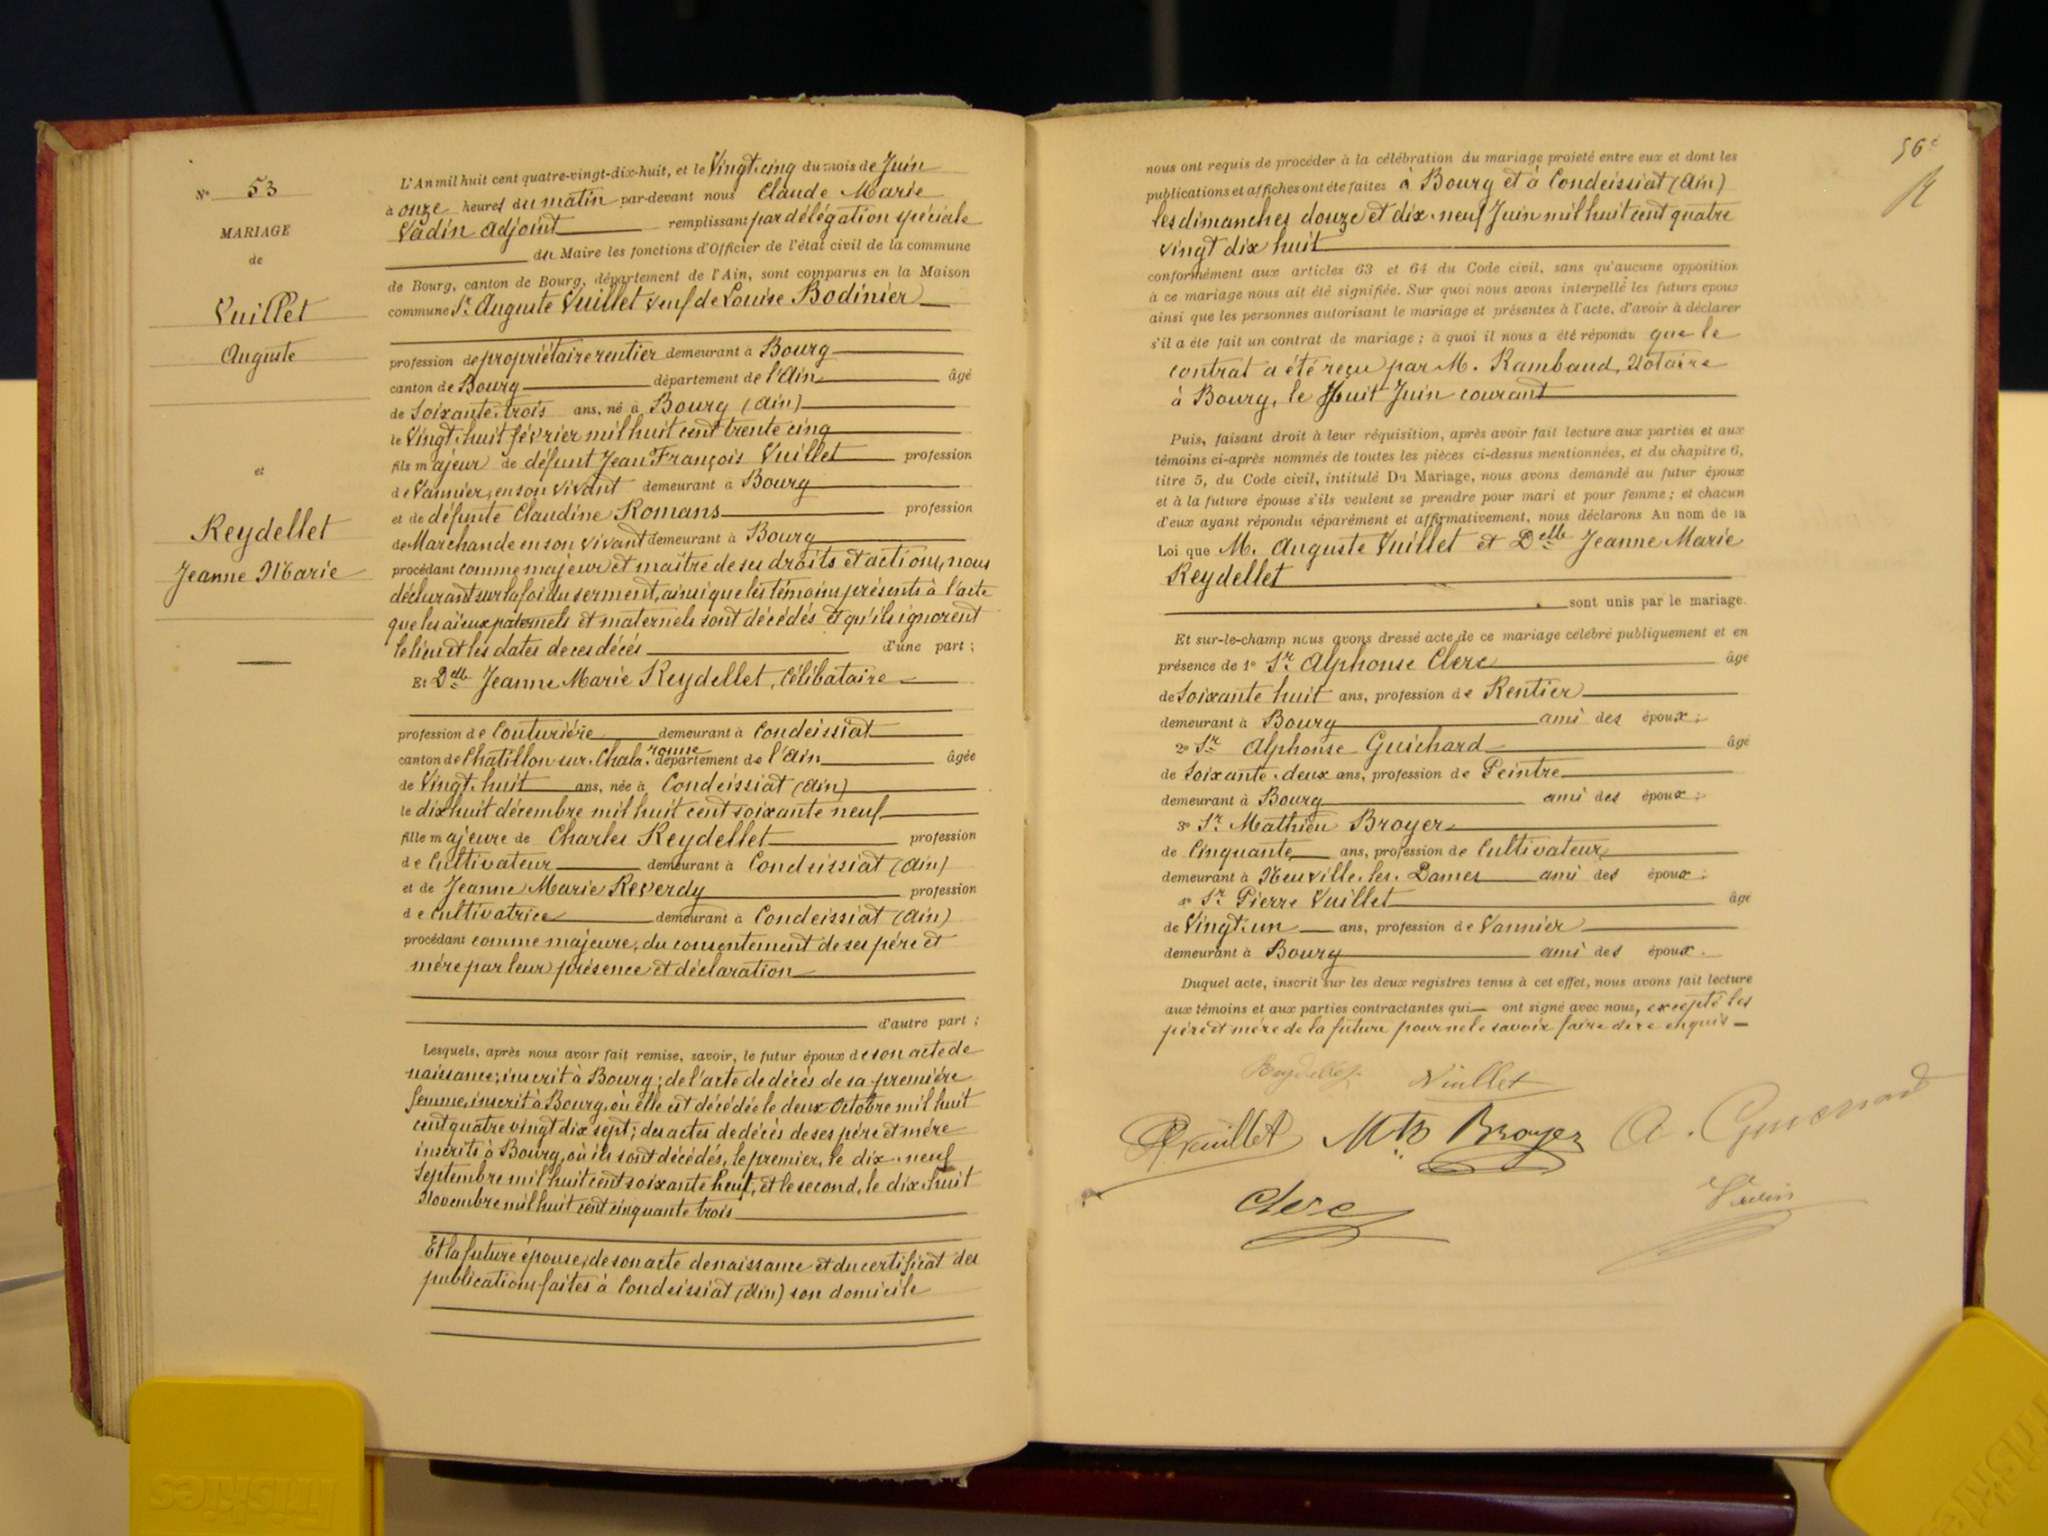 N° 53
MARIAGE
de
Vuillet
Auguste
et
Reydellet
Jeanne Marie
L'An mil huit cent quatre-vingt-dix-huit, et le Vingt-cinq du mois de Juin
à onze heures du matin par-devant nous Claude Marie
Vadin adjoint remplissant par délégation spéciale
du Maire les fonctions d'Officier de l'état civil de la commune
de Bourg, canton de Bourg, département de l'Ain, sont comparus en la Maison
commune Sr. Auguste Vuillet veuf de Louise Bodinier
profession de propriétaire rentier demeurant à Bourg
canton de Bourg département de l'Ain âgé
de Soixante-trois ans, né à Bourg (Ain)
le Vingt-huit février mil huit cent trente cinq
fils majeur de défunt Jean François Vuillet profession
de Vannier, en son vivant demeurant à Bourg
et de défunte Claudine Romans profession
de Marchande en son vivant demeurant à Bourg
procédant comme majeur et maître de ses droits et actions, nous
déclarant sur la foi du serment, ainsi que les témoins présents à l'acte
que les aïeux paternels et maternels sont décédés et qu'ils ignorent
le lieu et les dates de ces décés d'une part ;
Et Delle Jeanne Marie Reydellet, Célibataire
profession de Couturière demeurant à Condeissiat
canton de Chatillon-sur-Chalaronne département de l'Ain âgée
de Vingt-huit ans, née à Condeissiat (Ain)
le dix huit décembre mil huit cent soixante neuf
fille majeure de Charles Reydellet profession
de Cultivateur demeurant à Condeissiat (Ain)
et de Jeanne Marie Reverdy profession
de Cultivatrice demeurant à Condeissiat (Ain)
procédant comme majeure, du consentement de ses père et
mère par leur présence et déclaration
d'autre part ;
Lesquels, après nous avoir fait remise, savoir, le futur époux de son acte de
naissance, inscrit à Bourg; de l'acte de décès de sa première
femme, inscrit à Bourg, où elle est décédée le deux Octobre mil huit
cent quatre vingt dix sept; des actes de décès de ses père et mère
inscrits à Bourg, où ils sont décédés, le premier, le dix-neuf
Septembre mil huit cent soixante neuf, et le second, le dix-huit
Novembre mil huit cent cinquante trois
Et la future épouse, de son acte de naissance et du certificat des
publications faites à Condeissiat (Ain) son domicile
56e
nous ont requis de procéder à la célébration du mariage projeté entre eux et dont les
publications et affiches ont été faites à Bourg et à Condeissiat (Ain)
les dimanches douze et dix-neuf Juin mil huit cent quatre
vingt dix huit
conformément aux articles 63 et 64 du Code civil, sans qu'aucune opposition
à ce mariage nous ait été signifiée. Sur quoi nous avons interpellé les futurs epoux
ainsi que les personnes autorisant le mariage et présentes à l'acte, d'avoir à déclarer
s'il a été fait un contrat de mariage ; à quoi il nous a été répondu que le
contrat a été reçu par M. Rambaud, Notaire
à Bourg, le Huit Juin courant
Puis, faisant droit à leur réquisition, après avoir fait lecture aux parties et aux
témoins ci-après nommés de toutes les pièces ci-dessus mentionnées, et du chapitre 6,
titre 5, du Code civil, intitulé Du Mariage, nous avons demandé au futur époux
et à la future épouse s'ils veulent se prendre pour mari et pour femme ; et chacun
d'eux ayant répondu séparément et affirmativement, nous déclarons Au nom de la
Loi que M. Auguste Vuillet et Delle Jeanne Marie
Reydellet
sont unis par le mariage.
Et sur-le-champ nous avons dressé acte de ce mariage célebré publiquement et en
présence de 1° Sr. Alphonse Clerc âgé
de Soixante huit ans, profession de Rentier
demeurant à Bourg ami des époux ;
2° Sr. Alphonse Guichard âgé
de Soixante-deux ans, profession de Peintre
demeurant à Bourg ami des époux ;
3° Sr. Mathieu Broyer
de Cinquante ans, profession de Cultivateur
demeurant à Neuville-les-Dames ami des époux ;
4° Sr. Pierre Vuillet âgé
de Vingt-un ans, profession de Vannier
demeurant à Bourg ami des époux.
Duquel acte, inscrit sur les deux registres tenus à cet effet, nous avons fait lecture
aux témoins et aux parties contractantes qui ont signé avec nous, excepté les
père et mère de la future pour ne le savoir faire de ce enquis
Reydellet Vuillet
Vuillet Mth Broyer A. Guichard
Clerc Vadin
Triskies